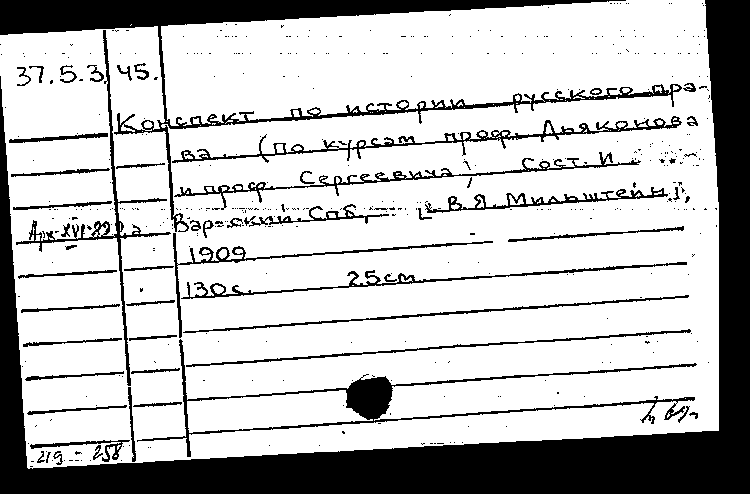 37.5.3 45.
Конспект по истории русского пра-
ва. (По курсам проф. Дьяконова
и проф. Сергеевича) Сост. И.
Вар-ский. Спб, В.Я. Мильштейн],
1909
130с. 25см
219 - 258